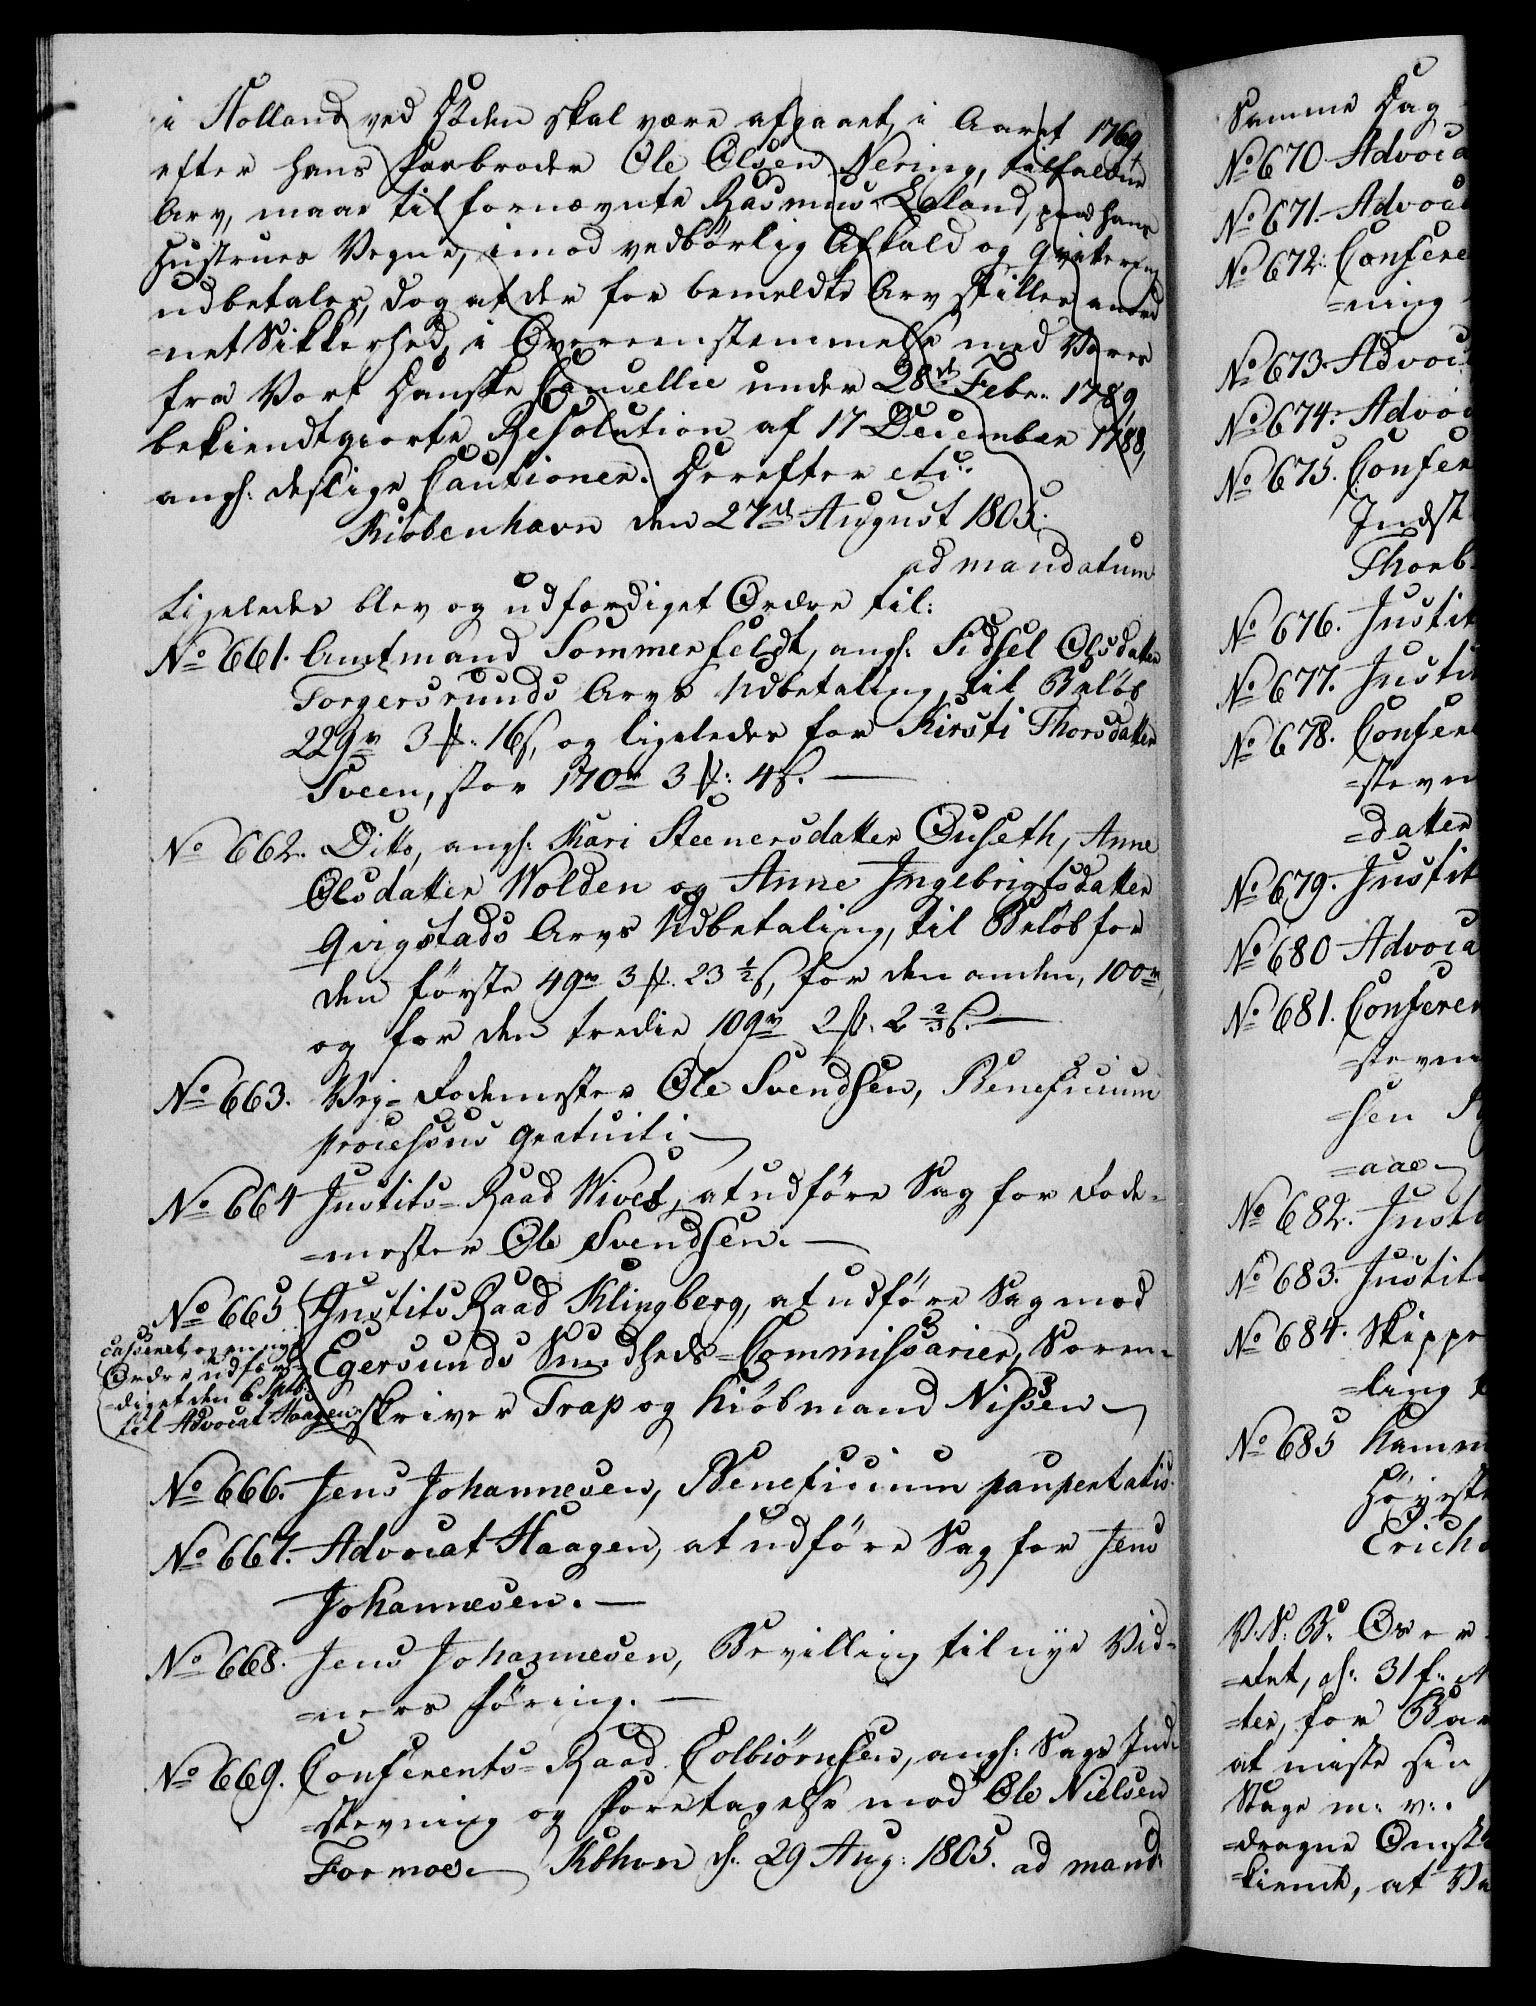 i Holland ved Döden skal være afgaaet, i Aaret 1769
efter hans Farbroder Ole Olsen Nering, tilfaldne
Arv, maae til fornævnte Rasmus Leland, paa hans
Hustrues Vegne, imod vedbörlig Afkald og Qvitering
udbetales, dog at der for bemeldte Arv stilles anord
=net Sikkerhed, i Overeensstemmelse med Vores
fra Vort Danske Cancellie under 28de Febr: 1789,
bekiendtgiorte Resolution af 17 December 1788,
angl: deslige Cautioner. Derefter etc:
Kiöbenhavn den 27de August 1805.
ad mandatum
Ligeledes blev og udfærdiget Ordre til:
No 661. Amtmand Sommerfeldt, angl: Sidsel Olsdatter
Torgersruuds Arvs Udbetaling, til Belöb
229rd 3 ₰: 16ß, og ligeledes for Kirsti Thorsdatter
Sveen, stor 170rd 3 ₰: 4ß. —
No 662. Ditto, angl: Kari Steenersdatter Ouseth, Anne
Olsdatter Wolden og Anne Ingebrigtsdatter
Qvigstads Arvs Udbetaling, til Belöb for
den förste 49rd 3 ₰. 23 ½ß, for den anden, 100rd,
og for den tredie 109rd 2 ₰. 2 ⅔ß. —
No 663. Vej=Fodermester Ole Svendsen, Beneficium
processus gratuiti —
No 664 Justits=Raad Wivet, at udföre Sag for Foder=
=mester Ole Svendsen. —
No 665 Justits Raad Klingberg, at udföre Sag mod
Egersunds Sundheds=Commissarier, Soren=
skriver Trap og Kiöbmand Nissen —
casseret, og en nye
Ordre udfær=
=diget den 6 Septb:
til Advocat Haagen
No 666. Jens Johannesen, Beneficium paupertatis.
No 667. Advocat Haagen, at udföre Sag for Jens
Johannesen. —
No 668. Jens Johannesen, Bevilling til nye Vid=
=ners Föring. —
No 669. Conferents=Raad Colbiörnsen, angl: Sags Ind=
=stevning og Foretagelse mod Ole Nielsen
Formoe. — Kbhvn d: 29 Aug: 1805. ad mand:
Samme Dag
No 670 Advoca
No 671. Advoca
No 672. Confere
=ning
No 673. Advoc
No 674. Advoc
No 675. Confer
Indst
Thorb
No 676. Justit
No 677. Justit
No 678. Confer
=stevn
=datter
No 679. Justit
No 680 Advoca
No 681. Conferen
=steven
=sen
=aae —
No 682. Justi
No 683. Justit
No 684. Skippe
=ling
No 685 Kamm
Höyest
Erichs
V. S. B. Over
=det, d: 31 f:
=ter, for Bar
at miste sin
Stage m: v:.
=dragne Omst
kiende, at Va